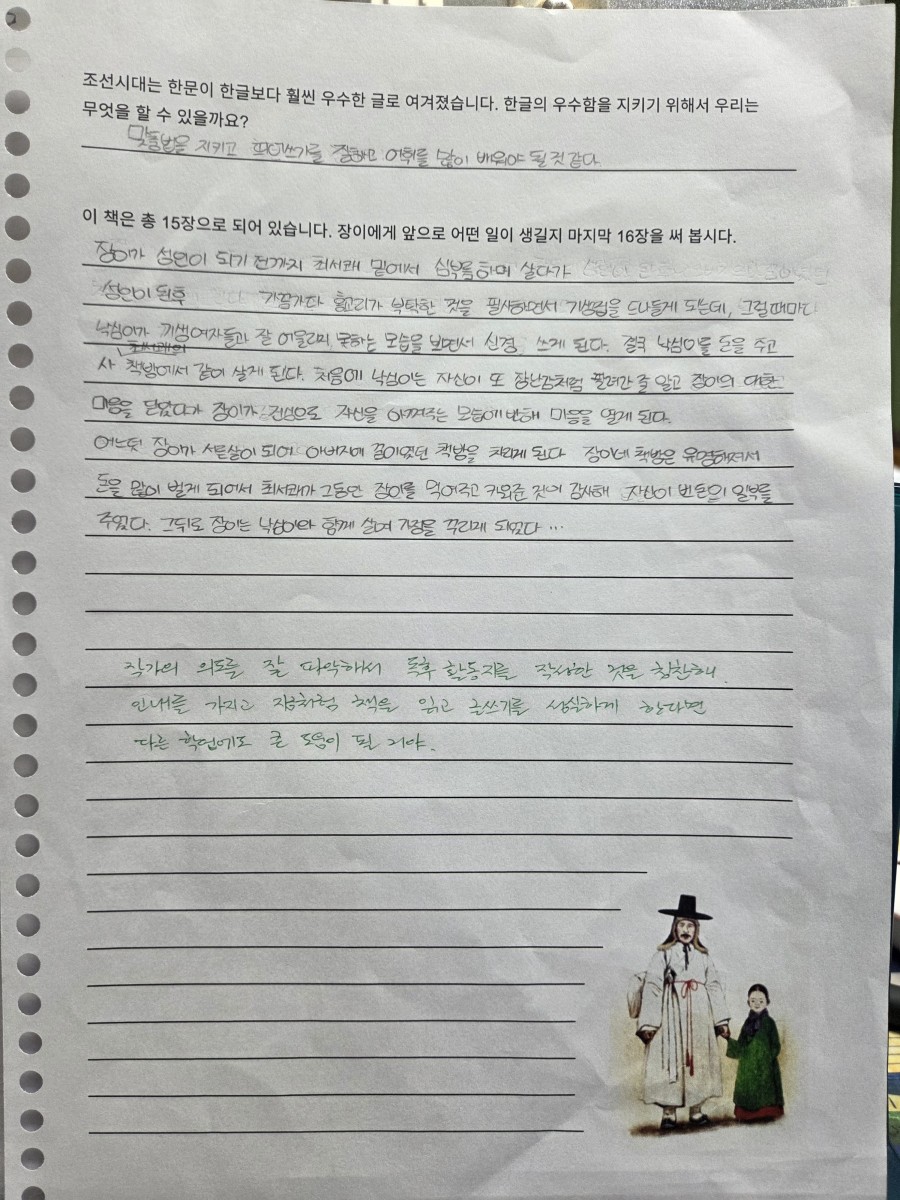 조선시대는 한문이 한글보다 훨씬 우수한 글로 여겨졌습니다. 한글의 우수함을 지키기 위해서 우리는
무엇을 할 수 있을까요?
맞춤법을 지키고 띄어쓰기를 잘하고 어휘를 많이 배워야 될 것 같다.
이 책은 총 15장으로 되어 있습니다. 장이에게 앞으로 어떤 일이 생길지 마지막 16장을 써 봅시다.
장이가 성인이 되기 전까지 최서쾌 밑에서 심부름하며 살다가
성인이 된후 가끔가다 홍교리가 부탁한 것을 필사하면서 기생집을 드나들게 되는데, 그럴때마다
낙심이가 기생여자들과 잘 어울리지 못하는 모습을 보면서 신경 쓰게 된다. 결국 낙심이를 돈을 주고
최서쾌의
사 책방에서 같이 살게 된다. 처음에 낙심이는 자신이 또 장난감처럼 팔려간 줄 알고 장이의 대한
마음을 닫았다가 장이가 진심으로 자신을 아껴주는 모습에 반해 마음을 열게 된다.
어느덧 장이가 서른살이 되어 아버지에 꿈이였던 책방을 차리게 된다 장이네 책방은 유명해져서
돈을 많이 벌게 되어서 최서쾌가 그동안 장이를 먹여주고 키워준 것에 감사해 자신이 번돈의 일부를
주었다. 그뒤로 장이는 낙심이와 함께 살며 가정을 꾸리게 되었다 ...
작가의 의도를 잘 파악해서 독후 활동지를 작성한 것을 칭찬해.
인내를 가지고 지금처럼 책을 읽고 글쓰기를 성실하게 한다면
다른 학업에도 큰 도움이 될 거야.